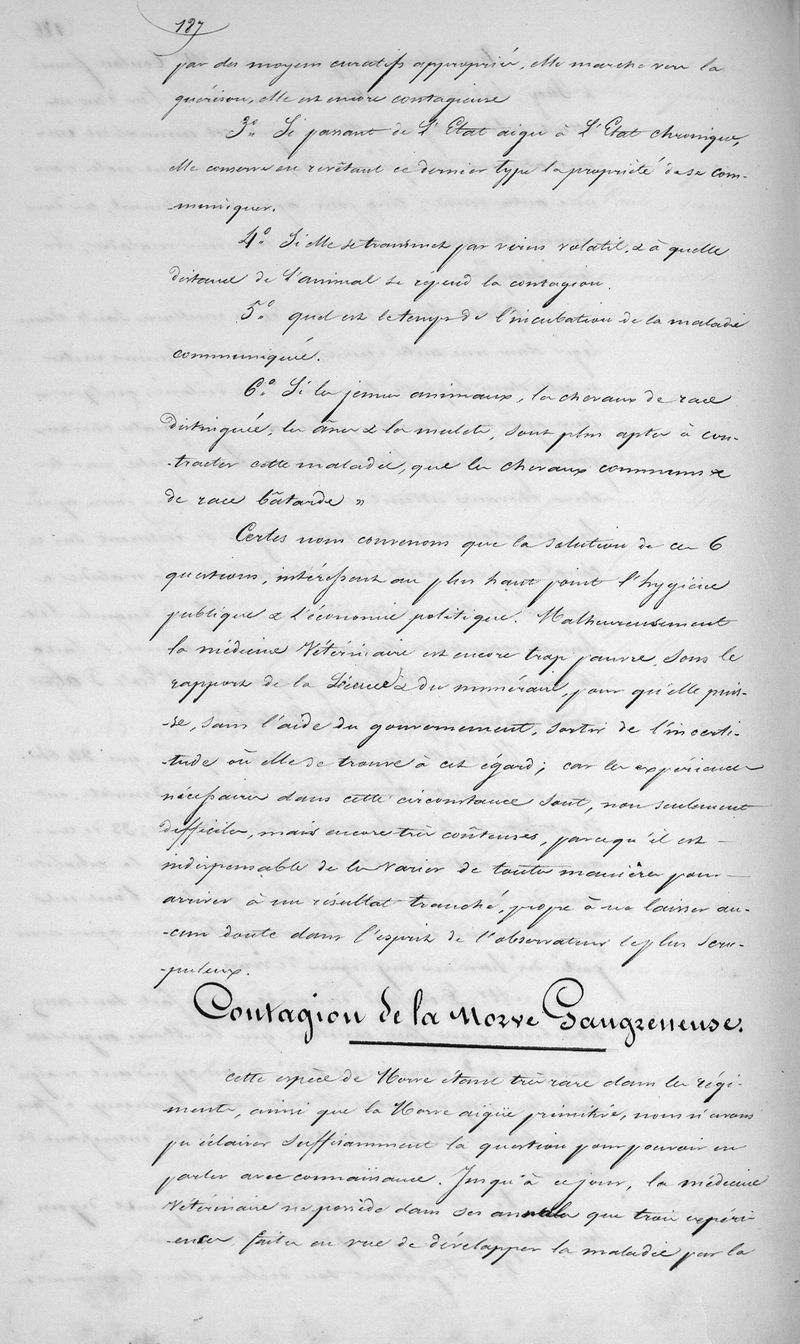 187
par des moyens curatifs approprié, elle marche vers la
guérison, elle est encore contagieuse
3.° Si passant de L'Etat aigu à L'Etat chronique,
elle conserve en revêtant ce dernier type la propriété de se com-
-muniquer.
4.° Si elle se transmet par virus volatil, & à quelle
distance de l'animal se répend la contagion.
5.° quel est le temps de l'incubation de la maladie
communiquée.
6.° Si les jeunes animaux, les chevaux de race
distinguée, les ânes & les mulets, sont plus aptes à con-
-tracter cette maladie, que les chevaux communs &
de race bâtarde »
Certes nous convenons que la solution de ces 6
questions, intéressent au plus haut point l'hygiène
publique & L'économie politique. Malheureusement
la médecine Vétérinaire est encore trop pauvre, sous le
rapport de la Science & du numéraire, pour qu'elle puis-
-se, sans l'aide du gouvernement, sortir de l'incerti-
-tude où elle se trouve à cet égard; car les expériences
nécessaires dans cette circonstance sont, non seulement
difficiles, mais encore très coûteuses, parcequ'il est —
indispensable de les varier de toutes manières pour —
arriver à un résultat tranché, propre à ne laisser au-
-cun doute dans l'esprit de l'observateur le plus scru-
-puleux.
Contagion de la Morve Gangreneuse.
Cette espèce de Morve étant très rare dans les régi-
ments, ainsi que la Morve aigüe primitive, nous n'avons
pu éclairer suffisamment la question pour pouvoir en
parler avec connaissance. Jusqu'à ce jour, la médecine
Vétérinaire ne possède dans ses annales que trois expéri-
-ences faites en vue de développer la maladie par la